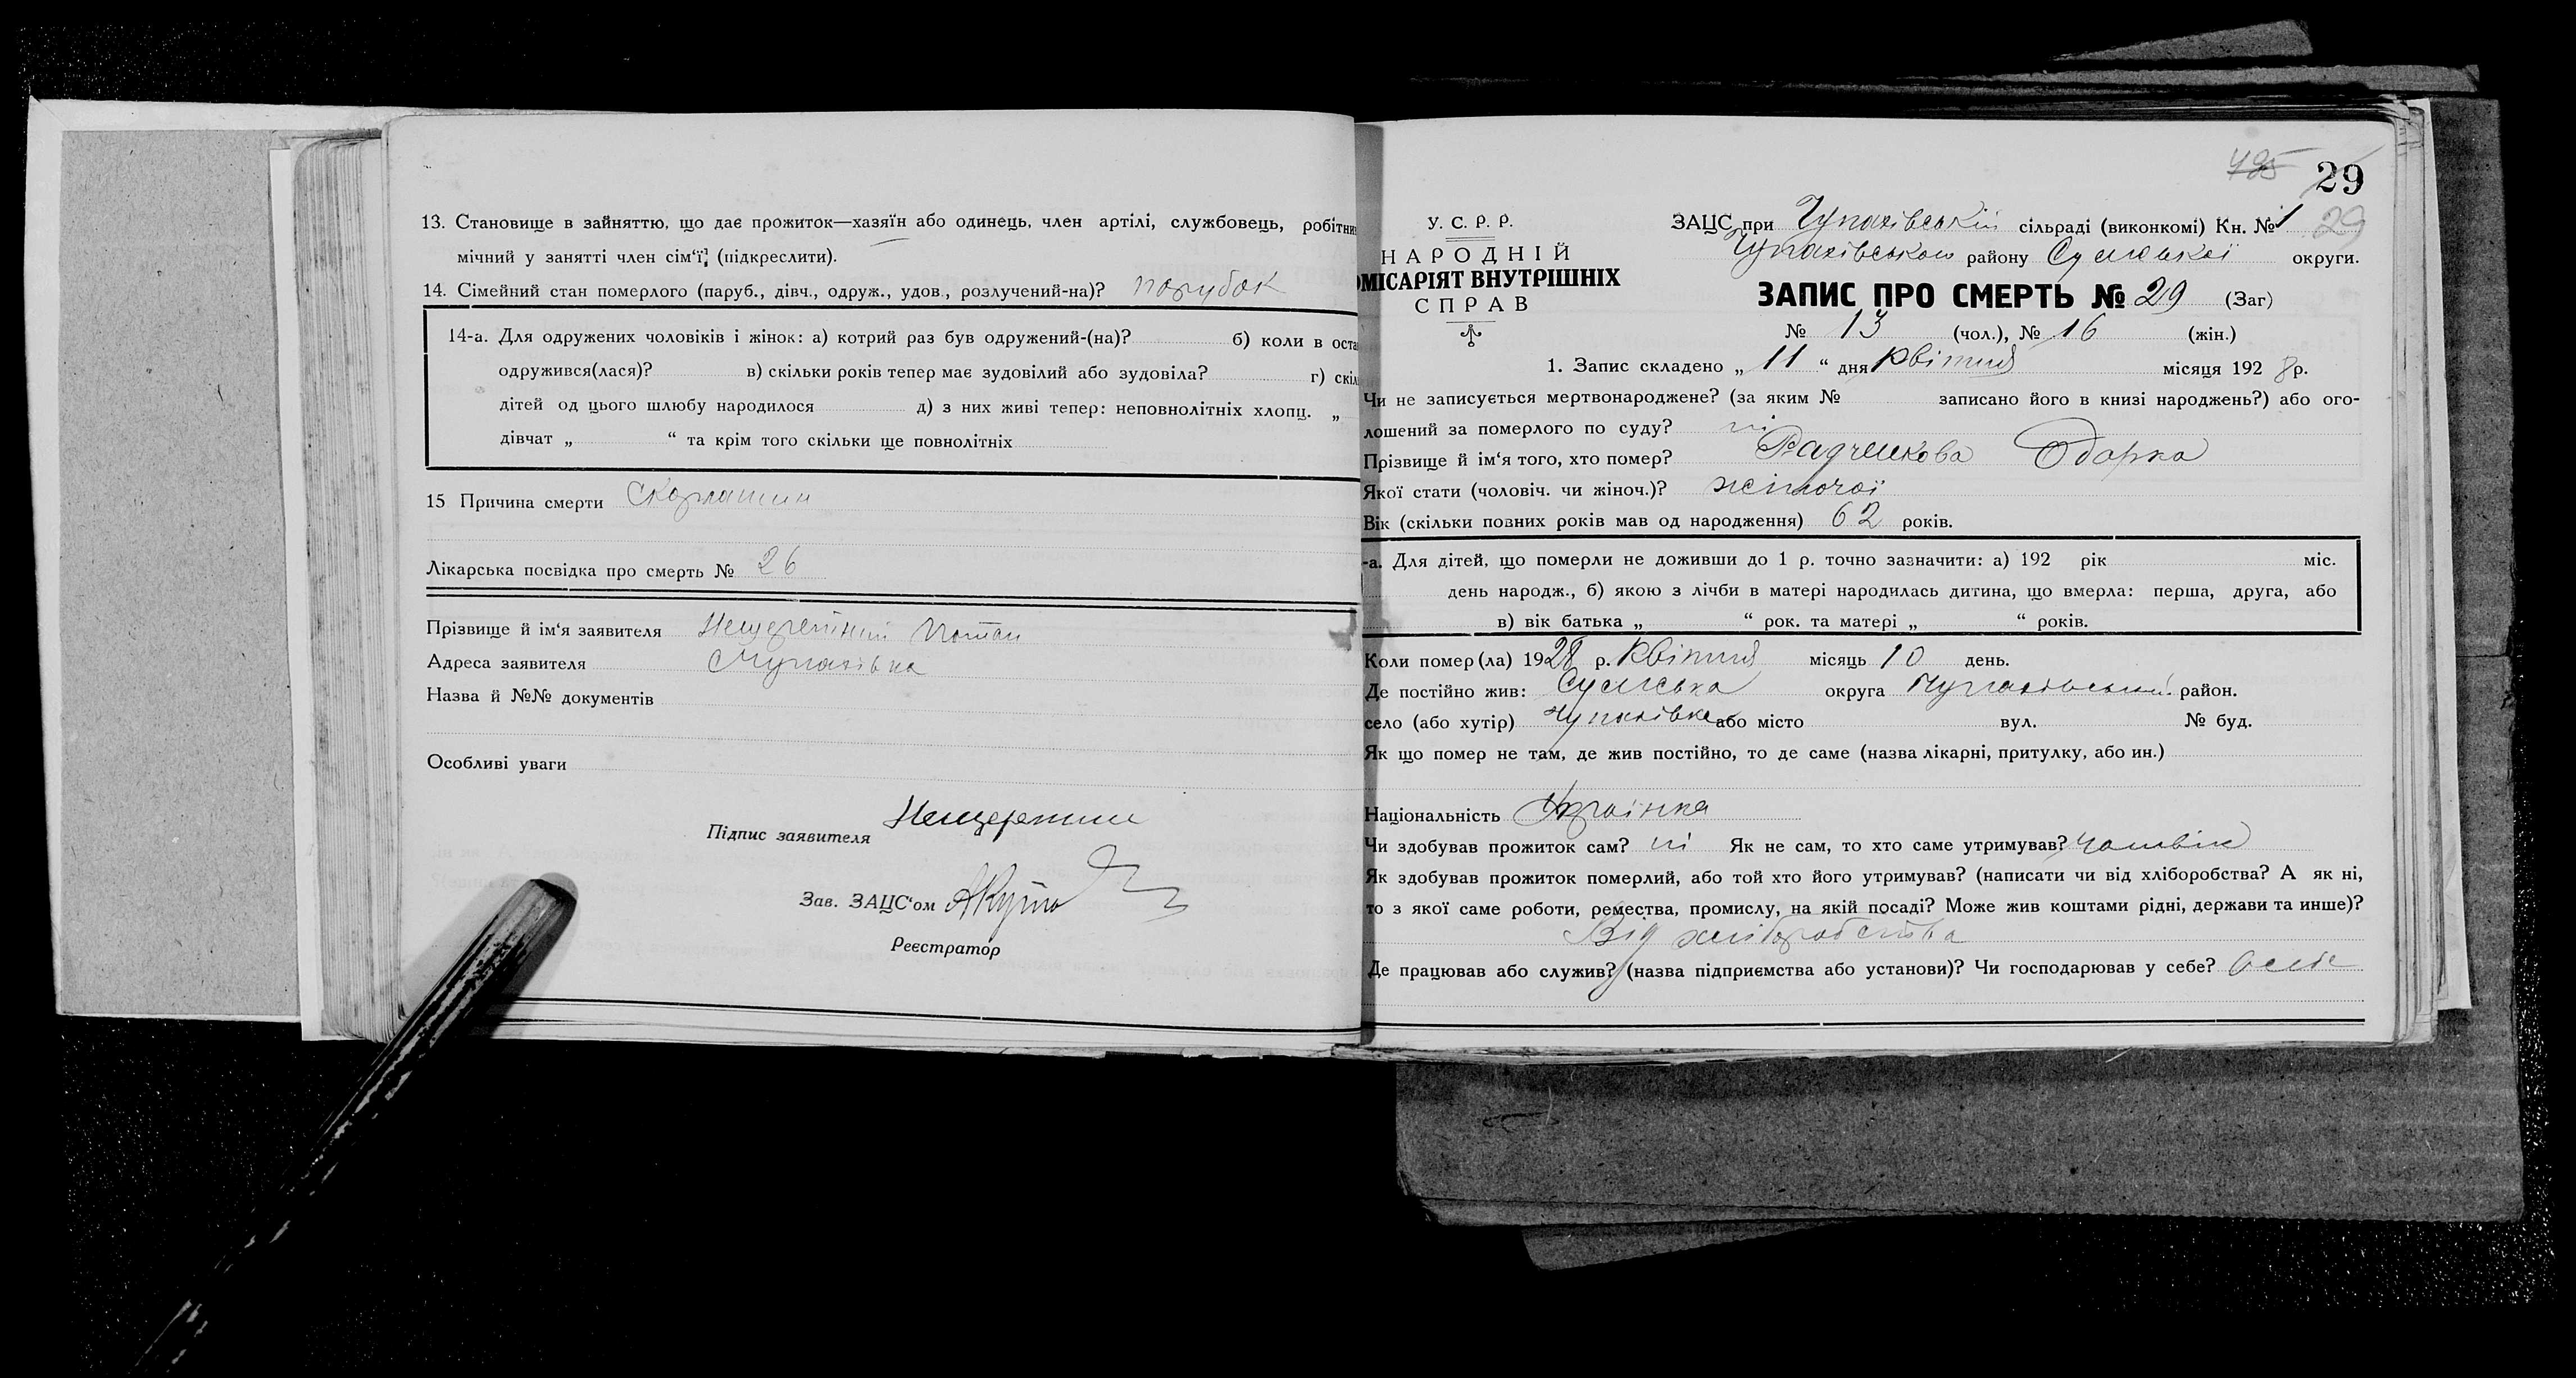 13. Становище в зайняттю, що дає прожиток—хазяїн або одинець, член артілі, службовець, робітни
мічний у занятті член сім‘ї; (підкреслити).
14. Сімейний стан померлого (паруб., дівч., одруж., удов., розлучений-на)? парубок
14-а. Для одружених чоловіків і жінок: а) котрий раз був одружений-(на)? б) коли в оста
одружився(лася)? в) скільки років тепер має зудовілий або зудовіла? г) скіль
дітей од цього шлюбу народилося д) з них живі тепер: неповнолітніх хлопц. „
дівчат „ “ та крім того скільки ще повнолітніх
15 Причина смерти Скарлатин
Лікарська посвідка про смерть № 26
Прізвище й ім‘я заявителя
Адреса заявителя Чупахівка
Назва й №№ документів
Особливі уваги
Підпис заявителя
Зав. ЗАЦС‘ом
Реєстратор
495 29
У. С. Р. Р.
НАРОДНІЙ
ОМІСАРІЯТ ВНУТРІШНІХ
СПРАВ
ЗАЦС при Чупахівській сільраді (виконкомі) Кн. № 1 29
Чупахівського району Сумської округи.
ЗАПИС ПРО СМЕРТЬ № 29 (Заг)
№ 13 (чол.), № 16 (жін.)
1. Запис складено „ 11 “ дня квітня місяця 1928 р.
Чи не записується мертвонароджене? (за яким № записано його в книзі народжень?) або ого-
лошений за померлого по суду? ні
Прізвище й ім‘я того, хто помер? Радченкова Одарка
Якої стати (чоловіч. чи жіноч.)? жіночої
Вік (скільки повних років мав од народження) 62 років.
-а. Для дітей, що померли не доживши до 1 р. точно зазначити: а) 192 рік міс.
день народж., б) якою з лічби в матері народилась дитина, що вмерла: перша, друга, або
в) вік батька „ “ рок. та матері „ “ років.
Коли помер(ла) 1928 р. квітня місяць 10 день.
Де постійно жив: Сумська округа Чупахівський район.
село (або хутір) Чупахівка або місто вул. № буд.
Як що помер не там, де жив постійно, то де саме (назва лікарні, притулку, або ин.)
Національність Українка
Чи здобував прожиток сам? ні Як не сам, то хто саме утримував? чоловік
Як здобував прожиток померлий, або той хто його утримував? (написати чи від хліборобства? А як ні,
то з якої саме роботи, ремества, промислу, на якій посаді? Може жив коштами рідні, держави та инше)?
Від хліборобства
Де працював або служив? (назва підприємства або установи)? Чи господарював у себе?